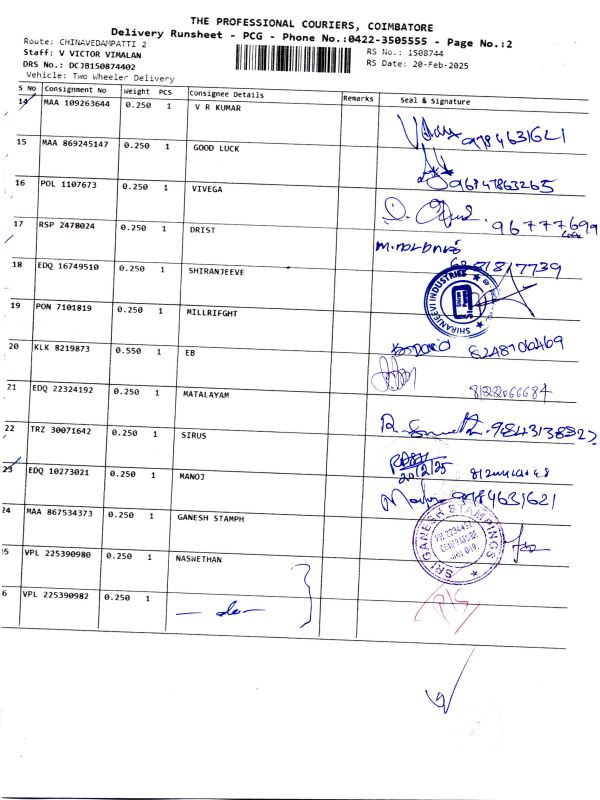 THE PROFESSIONAL COURIERS, COIMBATORE
Delivery Runsheet - PCG - Phone No.:0422-3505555 - Page No.:2
Route: CHINAVEDAMPATTI 2
Staff: V VICTOR VIMALAN
DRS No.: DCJB150874402
Vehicle: Two Wheeler Delivery
RS No.: 1508744
RS Date: 20-Feb-2025
S No Consignment No Weight PCS Consignee Details Remarks Seal & Signature
14 MAA 109263644 0.250 1 V R KUMAR 9784631621
15 MAA 869245147 0.250 1 GOOD LUCK 96847863265
16 POL 1107673 0.250 1 VIVEGA
17 RSP 2478024 0.250 1 DRIST
18 EDQ 16749510 0.250 1 SHIRANJEEVE SHIRANJEEVI INDUSTRIES
19 PON 7101819 0.250 1 MILLRIFGHT
20 KLK 8219873 0.550 1 EB
21 EDQ 22324192 0.250 1 MATALAYAM
22 TRZ 30071642 0.250 1 SIRUS 20/2/25
23 EDQ 10273021 1 0.250 MANOJ 9784631621
24 MAA 867534373 0.250 1 GANESH STAMPH SRI GANESH STAMPINGS
25 VPL 225390980 0.250 1 NASWETHAN
6 VPL 225390982 0.250 1 - do -